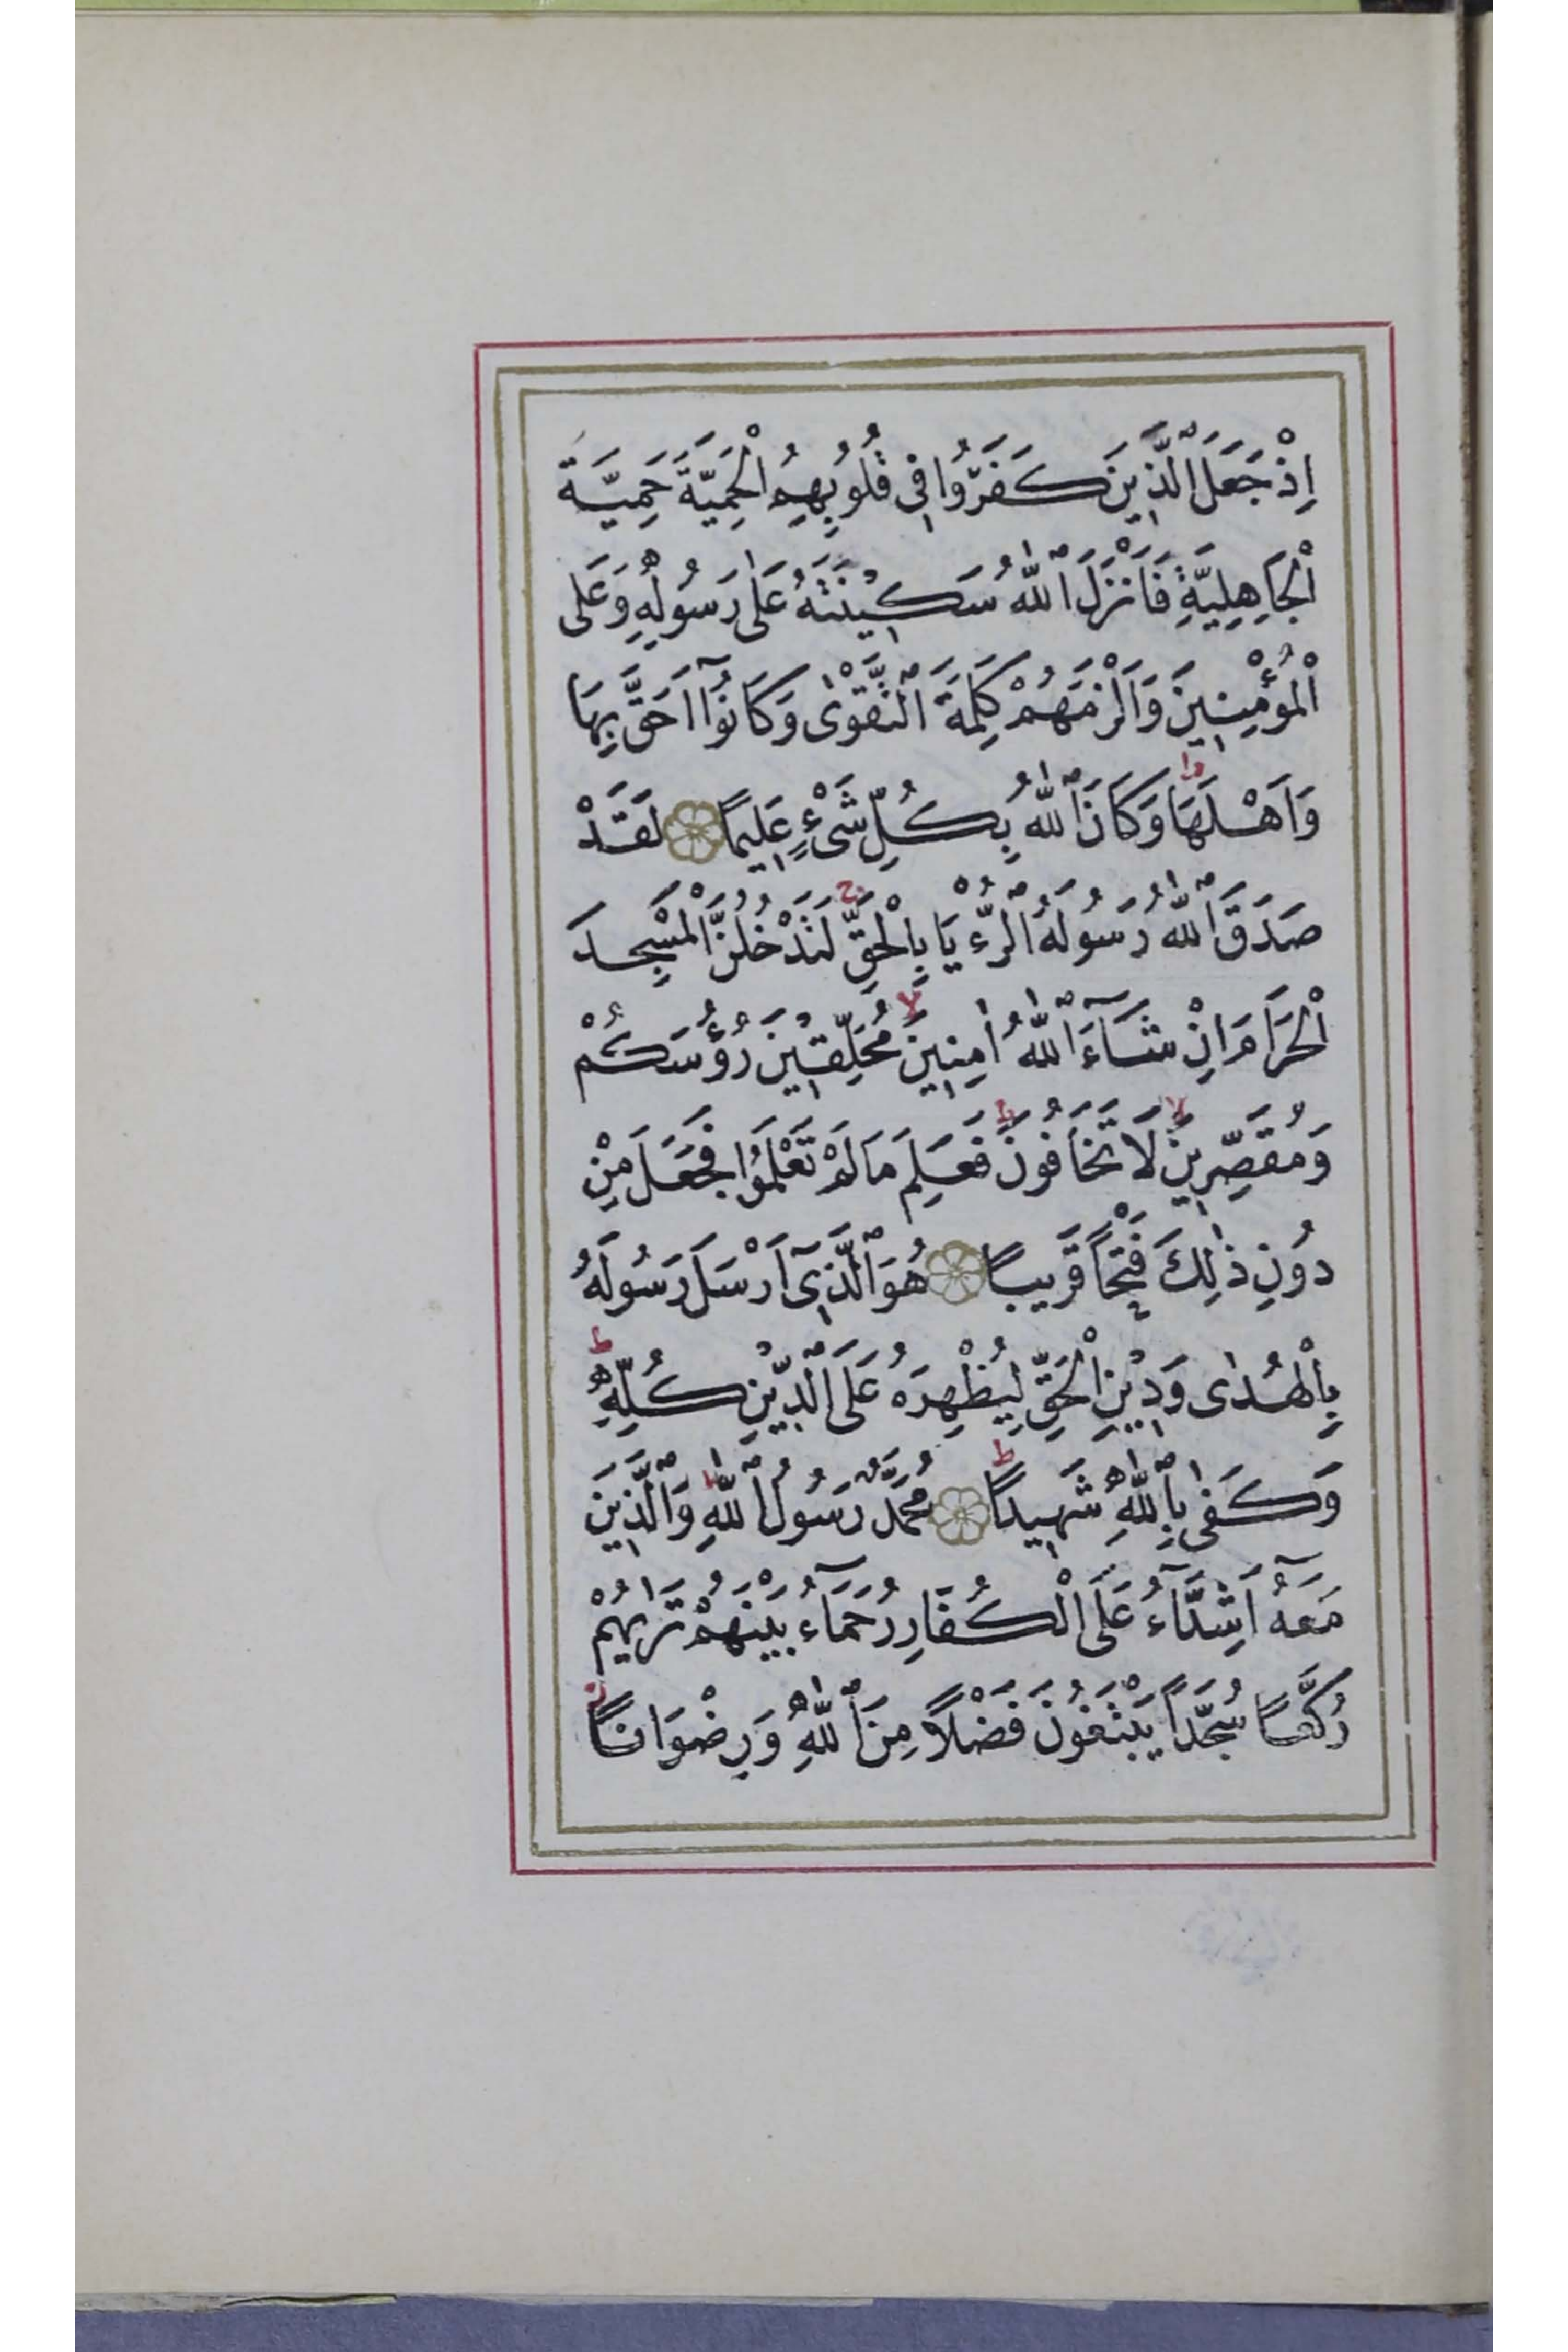 اِذْ جَعَلَ الَّذٖينَ كَفَرُوا فٖي قُلُوبِهِمُ الْحَمِيَّةَ حَمِيَّةَ
الْجَاهِلِيَّةِ فَاَنْزَلَ اللّٰهُ سَكٖينَتَهُ عَلٰى رَسُولِهٖ وَعَلَى
الْمُؤْمِنٖينَ وَاَلْزَمَهُمْ كَلِمَةَ التَّقْوٰى وَكَانُٓوا اَحَقَّ بِهَا
وَاَهْلَهَا وَكَانَ اللّٰهُ بِكُلِّ شَيْءٍ عَلٖيمًا لَقَدْ
صَدَقَ اللّٰهُ رَسُولَهُ الرُّءْيَا بِالْحَقِّ لَتَدْخُلُنَّ الْمَسْجِدَ
الْحَرَامَ اِنْ شَٓاءَ اللّٰهُ اٰمِنٖينَ مُحَلِّقٖينَ رُؤُسَكُمْ
وَمُقَصِّرٖينَ لَا تَخَافُونَ فَعَلِمَ مَا لَمْ تَعْلَمُوا فَجَعَلَ مِنْ
دُونِ ذٰلِكَ فَتْحًا قَرٖيبًا هُوَ الَّذٖٓي اَرْسَلَ رَسُولَهُ
بِالْهُدٰى وَدٖينِ الْحَقِّ لِيُظْهِرَهُ عَلَى الدّٖينِ كُلِّهٖ
وَكَفٰى بِاللّٰهِ شَهٖيدًا مُحَمَّدٌ رَسُولُ اللّٰهِ وَالَّذٖينَ
مَعَهُ اَشِدَّٓاءُ عَلَى الْكُفَّارِ رُحَمَٓاءُ بَيْنَهُمْ تَرٰيهُمْ
رُكَّعًا سُجَّدًا يَبْتَغُونَ فَضْلًا مِنَ اللّٰهِ وَرِضْوَانًا